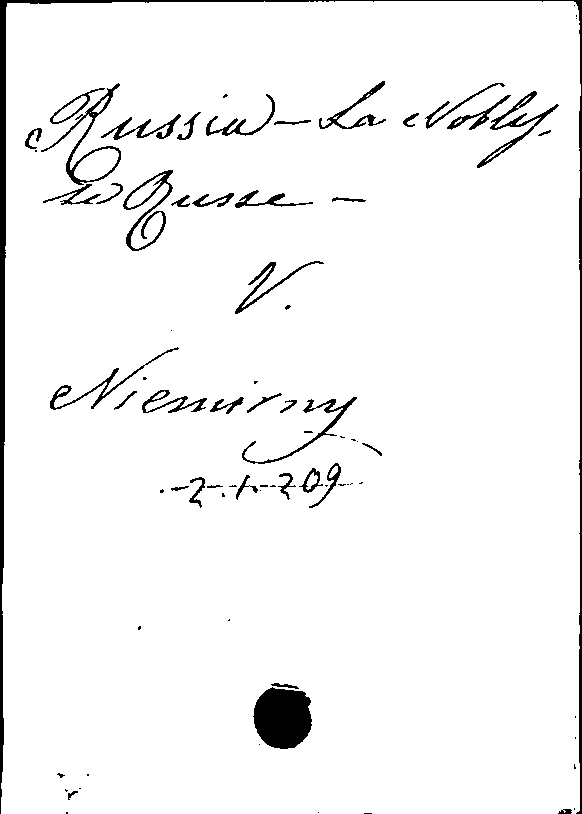 Russia – La Nobles-
se Russe –
V.
Niemirny
2.1.209